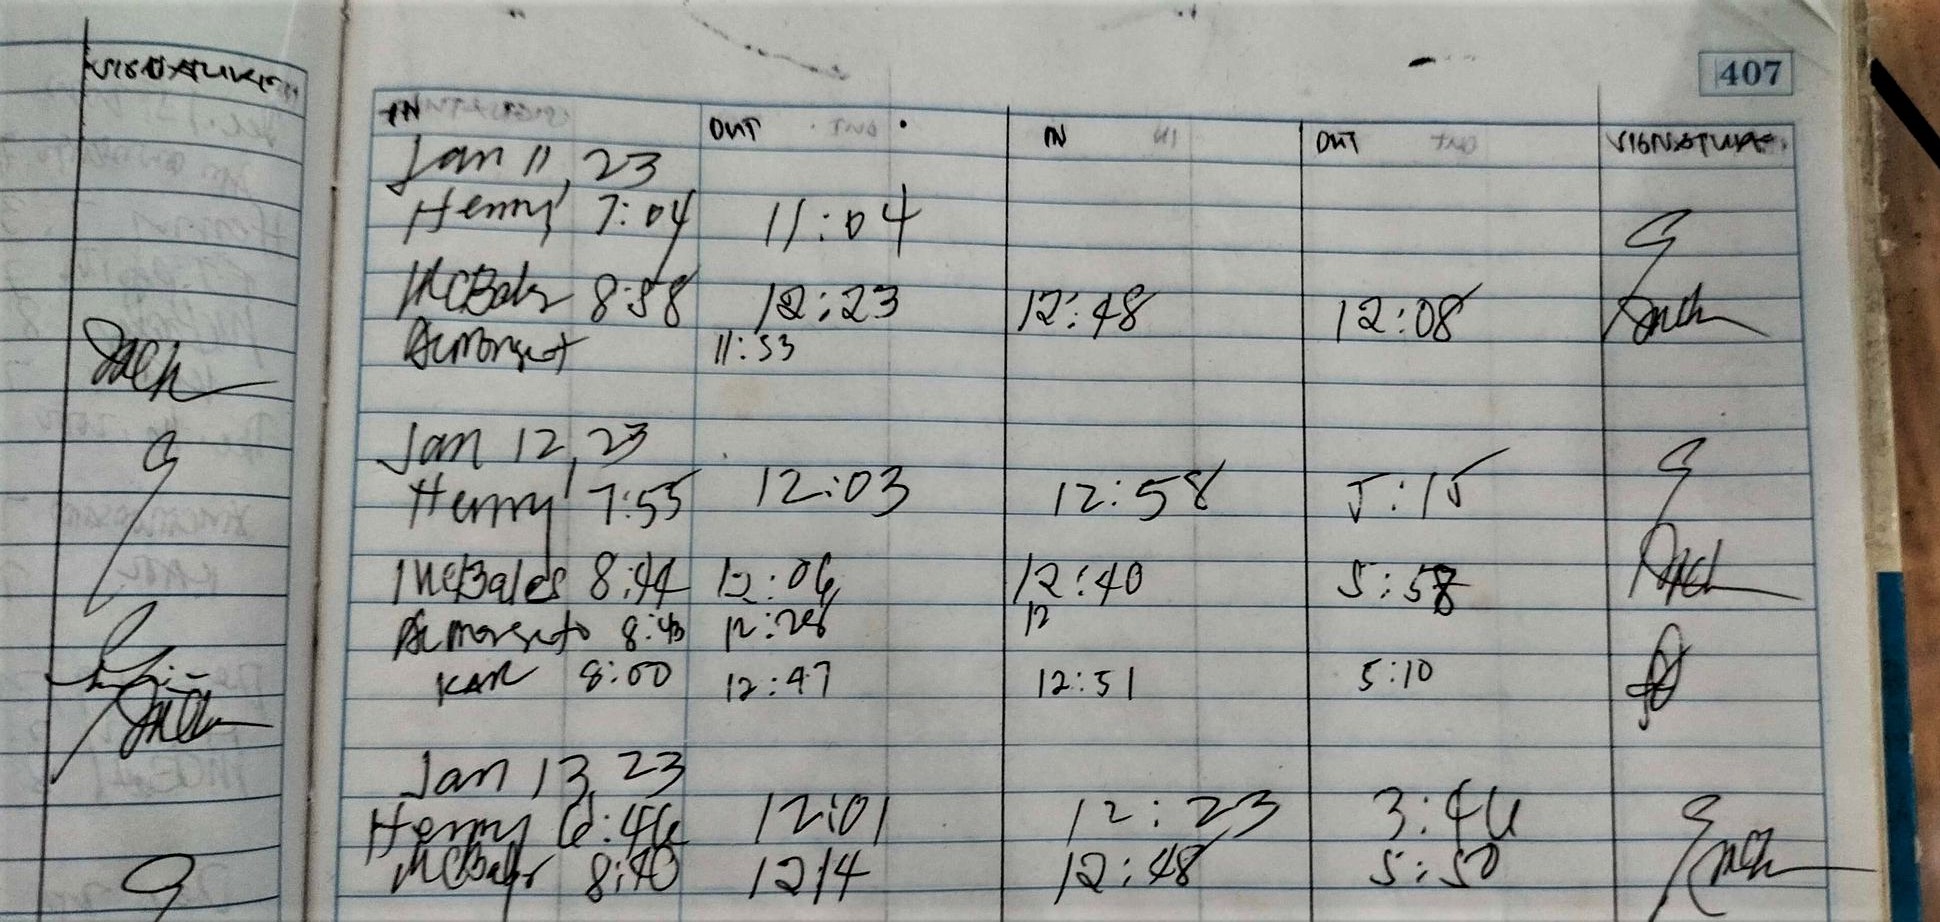 SIGNATURE
407
IN OUT IN OUT SIGNATURE
Jan 11, 23
Henry 7:04 11:04
McBales 8:58 12:23 12:48 12:08
11:53
Jan 12, 23
Henry 7:55 12:03 12:58 5:15
McBales 8:44 12:06 12:40 5:58
8:43 12:28 12
KAR 8:00 12:47 12:51 5:10
Jan 13, 23
Henry 6:46 12:01 12:23 3:46
McBales 8:40 1214 12:48 5:50